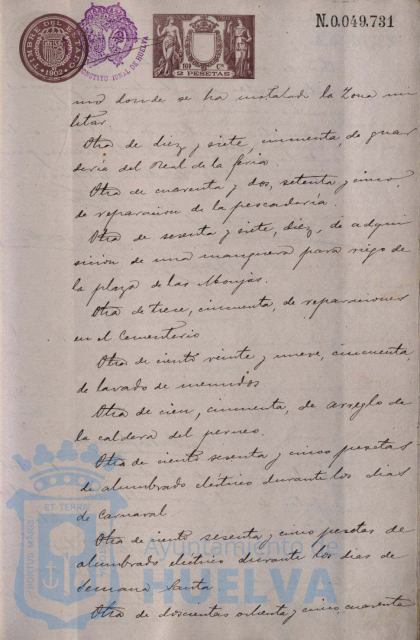 N.0.049.731
TIMBRE DEL ESTADO
1902
INSTITUTO GRAL. DE HUELVA
2 PESETAS
mo donde se ha instalado la Zona mi
litar.
Otra de diez y siete, cincuenta, de guar
dería del Real de la feria.
Otra de cuarenta y dos, setenta y cinco,
de reparacion de la pescadería.
Otra de sesenta y siete, diez, de adqui
sicion de una manguera para riego de
la plaza de las Monjas.
Otra de trece, cincuenta, de reparaciones
en el Cementerio
Otra de ciento veinte y nueve, cincuenta,
de lavado de menudos
Otra de cien, cincuenta, de arreglo de
la caldera del perneo.
Otra de ciento sesenta y cinco pesetas
de alumbrado electrico durante los dias
de Carnaval
Otra de ciento sesenta y cinco pesetas de
alumbrado electrico durante los dias de
Semana Santa
Otra de doscientas ochenta y cinco, cuarenta
Ayuntamiento de
HUELVA